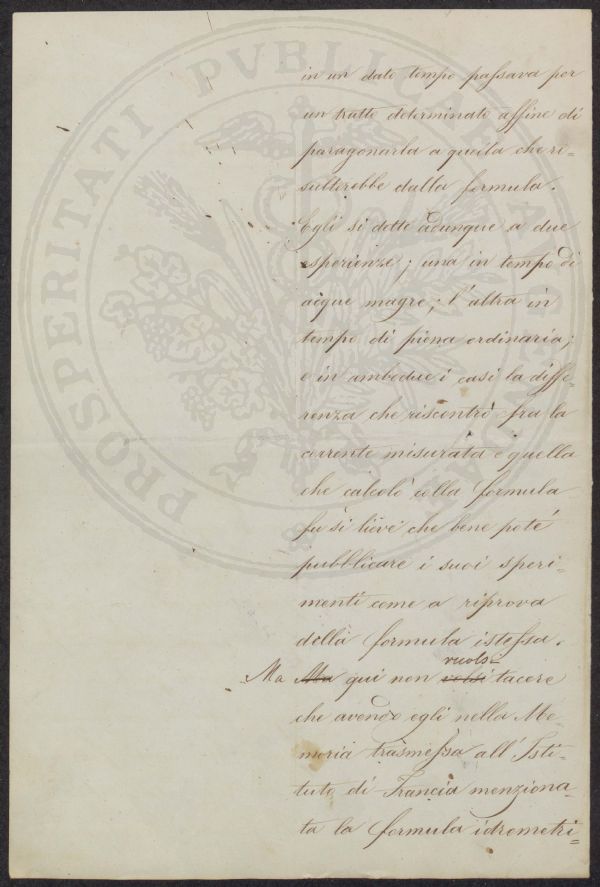 in un dato tempo passava per
un tratto determinato affine di
paragonarla a quella che ri=
sulterebbe dalla formula.
Egli si dette adunque a due
esperienze; una in tempo di
acque magre; l'altra in
tempo di piena ordinaria;
e in ambedue i casi la diffe=
renza che riscontrò fra la
corrente misurata e quella
che calcolò colla formula
fu sì lieve che bene potè
pubblicare i suoi speri=
menti come a riprova
della formula istessa.
vuolsi
Ma Ma qui non volsi tacere
che avendo egli nella Me=
moria trasmessa all'Isti=
tuto di Francia menziona=
ta la formula idrometri=
PROSPERITATI PVBLICAE AVGENDAE